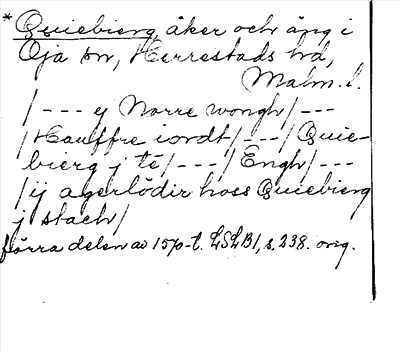 * Quiebierg, åker och äng i
Öja sn, Herrestads hd,
Malm. l.
/--- ej Norre wongh/---
/Hauffre iordt/---/Quie-
bierg j té/---/Engh/---
/ij agerlödir hoss Quiebierg
j stach/
förra delen av 1570-t. LSLB1, s. 238. orig.